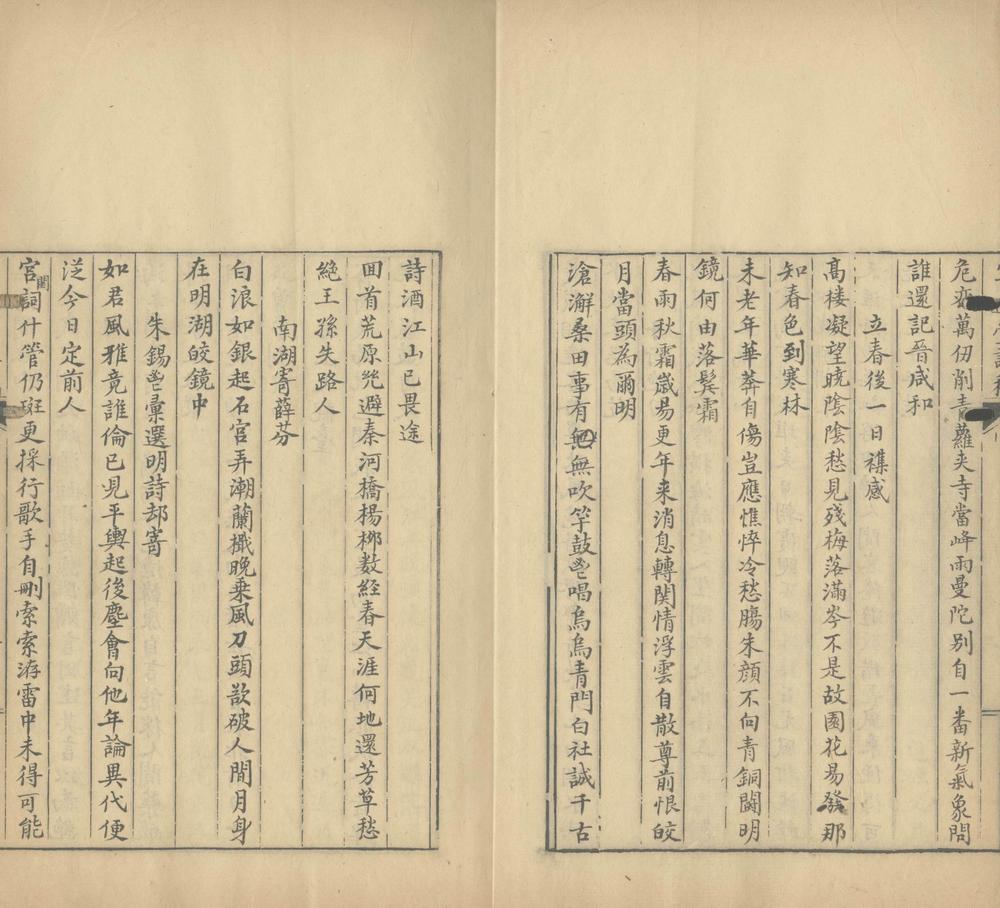 危𡶶萬仞削青蘿夾寺當峰雨曼陀別自一番新氣象問
誰還記晉咸和
立春後一日襍感
高楼凝望曉陰陰愁見殘梅落滿岑不是故園花易發那
知春色到寒林
未老年華莽自傷豈應憔悴冷愁腸朱顏不向青銅鬭明
鏡何由落鬂霜
春雨秋霜歲易更年来消息轉関情浮雲自散尊前恨皎
月當頭為爾明
滄澥桑田事有無無吹竽鼓瑟唱烏烏青門白社誠千古
詩酒江山已畏途
囬首荒原共避秦河橋楊栁数經春天涯何地還芳草愁
絶王孫失路人
南湖寄薛芬
白浪如銀起石宫弄潮蘭檝晚乘風刀頭欲破人間月身
在明湖皎鏡中
朱錫鬯彚選明詩却寄
如君風雅竟誰倫已見平輿起後塵會向他年論異代便
泛今日定前人
宫闈詞什管仍斑更採行歌手自刪索索洊雷中未得可能